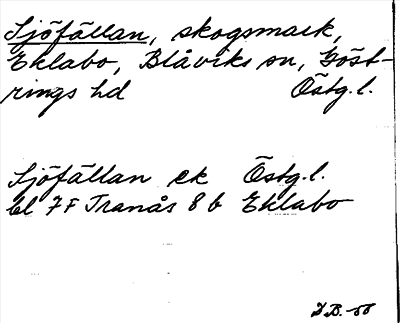 Sjöfällan, skogsmark,
Eklabo, Blåviks sn, Göst-
rings hd Östg. l.
Sjöfällan ek Östg. l.
bl 7F Tranås 8b Eklabo
D.B. -66